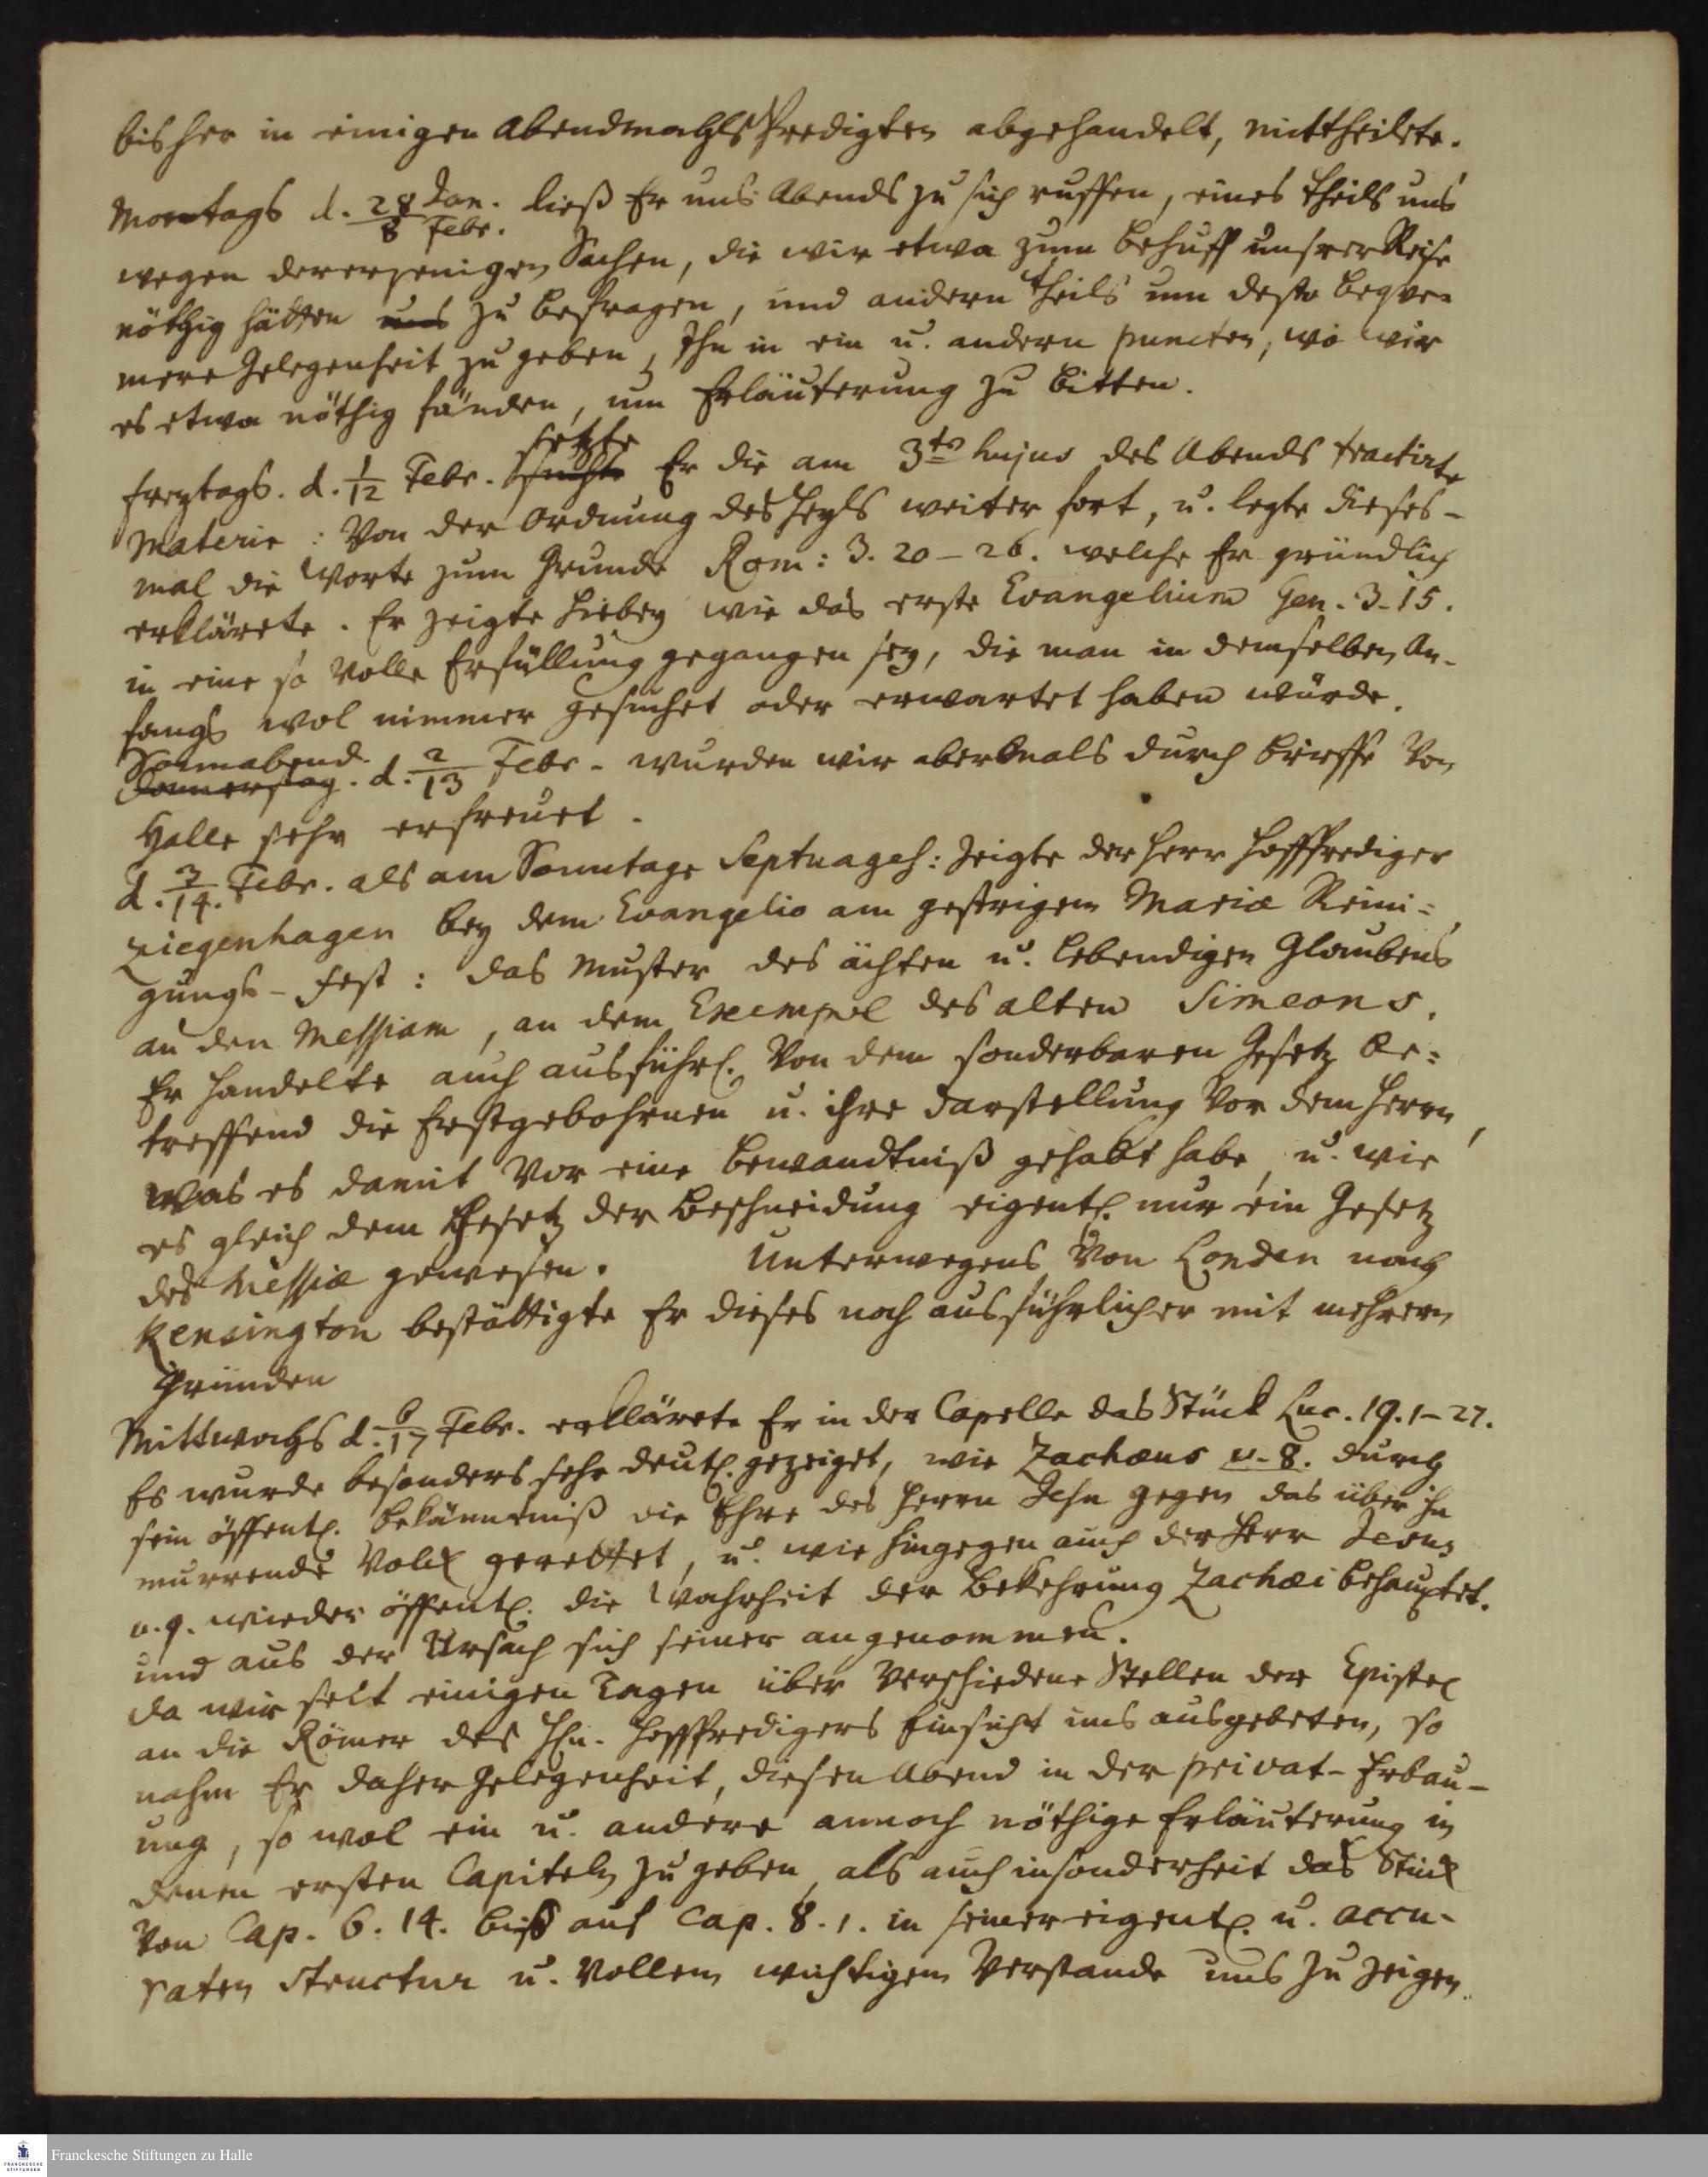 bisher in einigen Abendmahls Predigten abgehandelt, mittheilete.
Montags d. 28 Jan. / 8 Febr. ließ Er uns Abends zu sich ruffen, eines theils uns
wegen dererjenigen Sachen, die wir etwa zum Behuff unsrer Reise
nöthig hätten uns zu befragen, und andern theils um desto beqve-
mere Gelegenheit zu geben, Ihn in ein u. andern puncten, wo wir
es etwa nöthig fänden, um Erläuterung zu bitten.
setzte
freytags. d. 1/12 Febr. Er die am 3ten hujus des Abends tractirte
Materie: Von der Ordnung des Heyls weiter fort, u. legte dieses-
mal die Worte zum Grunde Rom: 3. 20-26. welche Er gründlich
erklärete. Er zeigte hiebey wie das erste Evangelium Gen. 3-15.
in eine so volle Erfüllung gegangen sey, die man in demselben An-
fangs wol nimmer gesuchet oder erwartet haben würde.
Sonnabend.
Donnerstag. d. 2/13 Febr. wurden wir abermals durch Brieffe von
Halle sehr erfreuet.
d. 3/14. Febr. als am Sonntage Septuages: zeigte der Herr Hoffprediger
Ziegenhagen bey dem Evangelio am gestrigen Mariæ Reini-
gungs-Fest: das Muster des ächten u. lebendigen Glaubens
an den Messiam, an dem Exempel des alten Simeons.
Er handelte auch ausführl. von dem sonderbaren Gesetz be-
treffend die Erstgebohrnen u. ihre Darstellung vor dem Herrn,
was es damit vor eine Bewandtniß gehabt habe, u. wie
es gleich dem Gesetz der Beschneidung eigentl. nur ein Gesetz
des Messiæ gewesen. Unterwegens von Londen nach
Kensington bestättigte Er dieses noch ausführlicher mit mehrern
Gründen
Mittwochs d. 6/17 Febr. erklärete Er in der Capelle das Stück Luc. 19. 1-27.
Es wurde besonders sehr deutl. gezeiget, wie Zachæus v. 8. durch
sein öffentl. Bekänntniß die Ehre des Herrn Jesu gegen das über ihn
murrende Volck gerettet, u. wie hingegen auch der Herr Jesus
v. 9. wieder öffentl. die Wahrheit der Bekehrung Zachæi behauptet.
und aus der Ursach sich seiner angenommen.
da wir seit einigen Tagen über verschiedene Stellen der Epistel
an die Römer des Hn. Hoffpredigers Einsicht uns ausgebeten, so
nahm Er daher Gelegenheit, diesen Abend in der privat-Erbau-
ung, so wol ein u. andere annoch nöthige Erläuterung in
denen ersten Capiteln zu geben, als auch insonderheit das Stück
von Cap. 6. 14. biß auf Cap. 8. 1. in seiner eigentl. u. accu-
raten structur u. vollem wichtigem Verstande uns zu zeigen.
Franckesche Stiftungen zu Halle
FRANCKESCHE
STIFTUNGEN